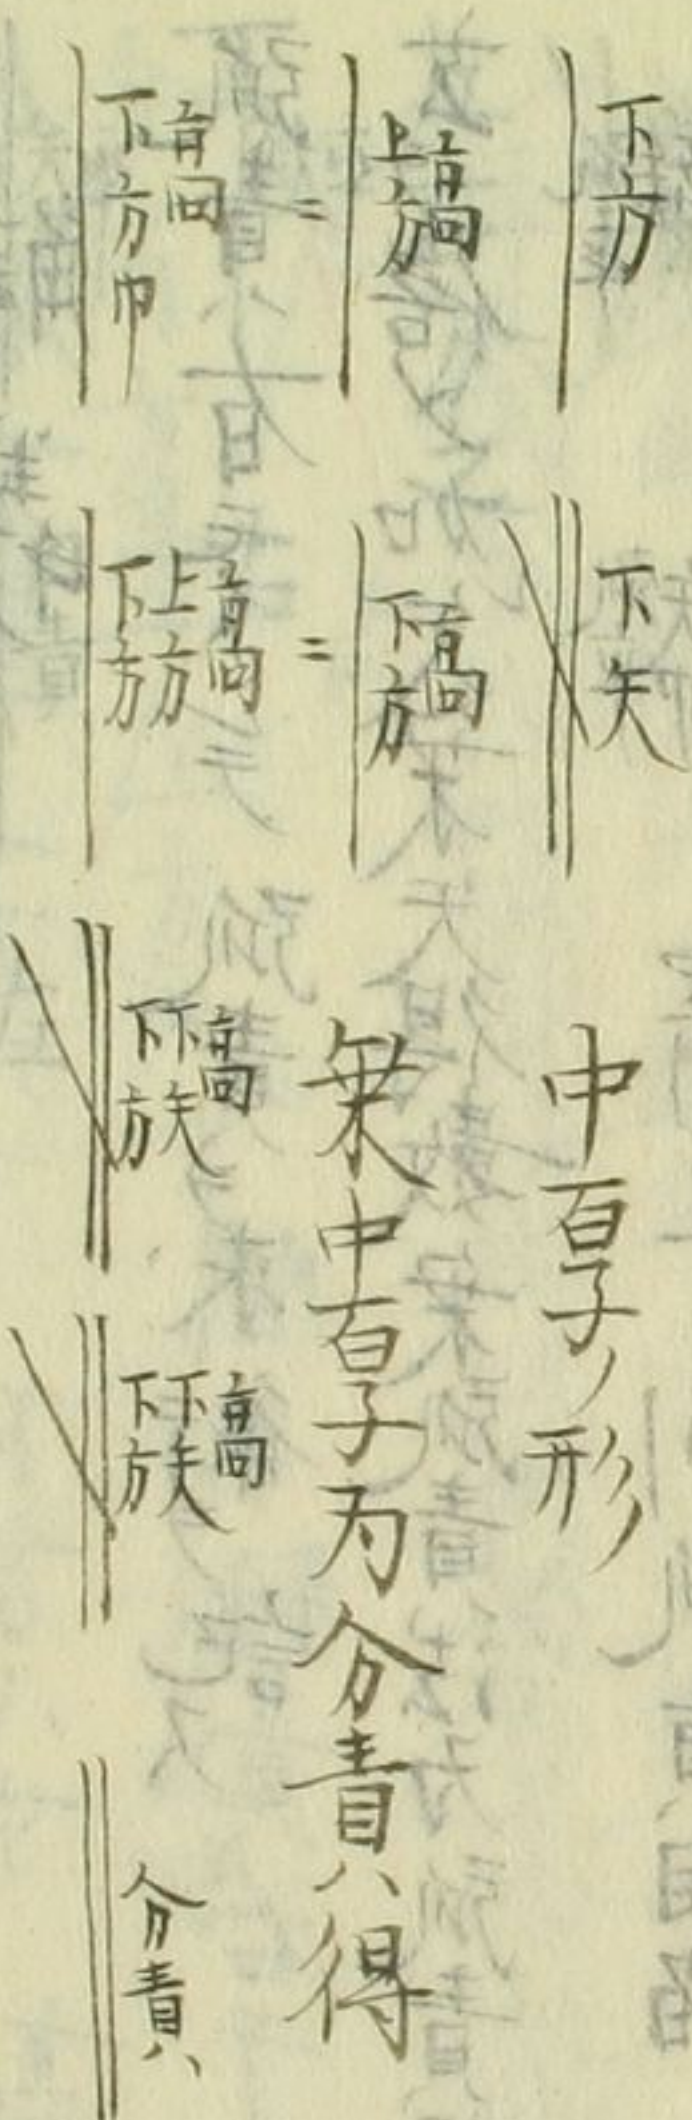 下方 下矢 中㫗ノ形
高上方 = 高下方 = 乗中㫗为分責得
高下方巾 高上方下方 高下矢下方 高下矢下方 分責